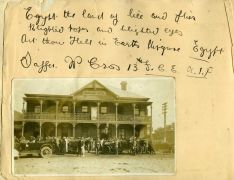 Egypt the land of lice and flies
Blighted hopes and blighted eyes
Art thou Hell in Earths Disguise Egypt
Sapper W Cross 13th F. C. E. A.I.F